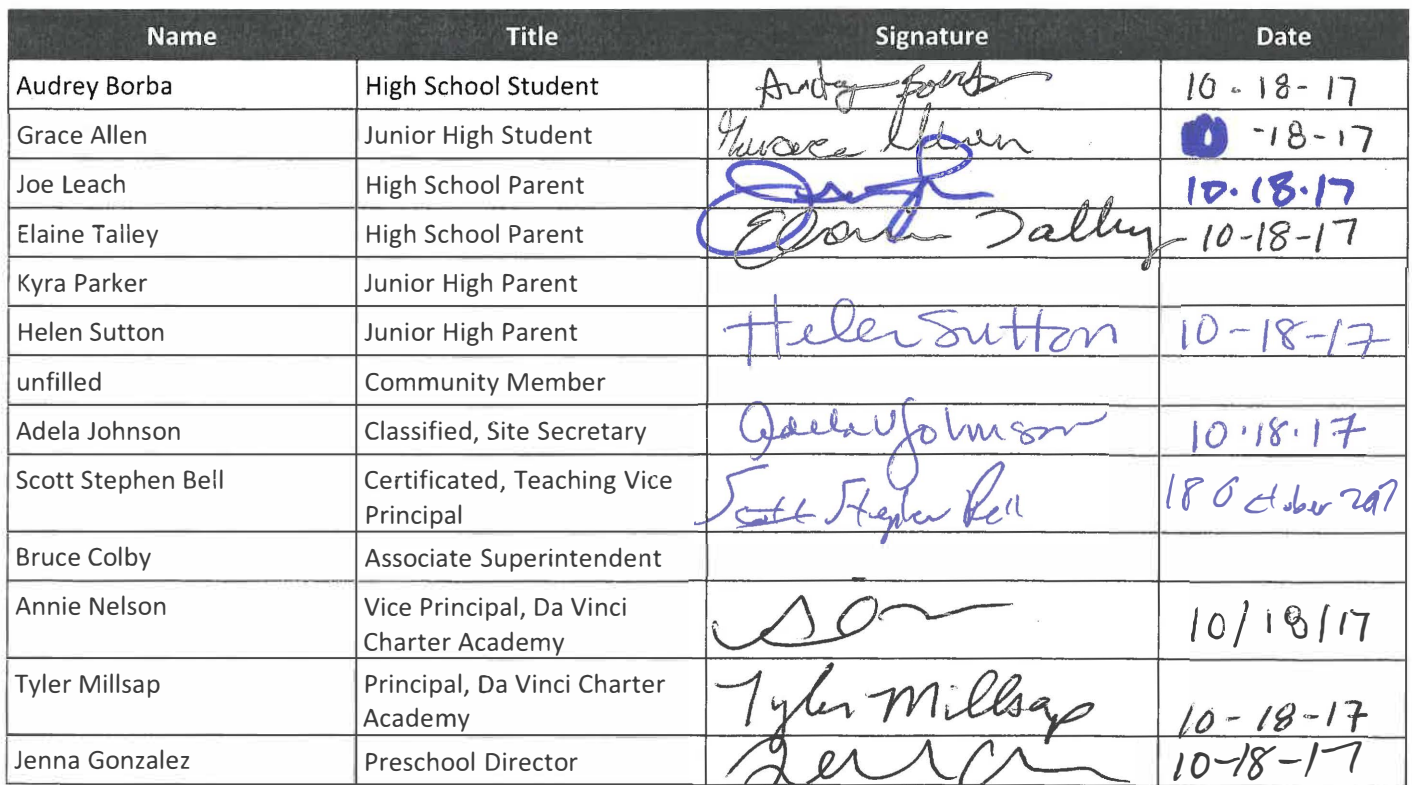 Name Title Signature Date
Audrey Borba High School Student Audrey Borba 10-18-17
Grace Allen Junior High Student -18-17
Joe Leach High School Parent 10.18.17
Elaine Talley High School Parent Elaine Talley 10-18-17
Kyra Parker Junior High Parent
Helen Sutton Junior High Parent Helen Sutton 10-18-17
unfilled Community Member
Adela Johnson Classified, Site Secretary Adela V Johnson 10.18.17
Scott Stephen Bell Certificated, Teaching Vice
Principal Scott Stephen Bell 18 October 2017
Bruce Colby Associate Superintendent
Annie Nelson Vice Principal, Da Vinci
Charter Academy 10/18/17
Tyler Millsap Principal, Da Vinci Charter
Academy Tyler Millsap 10-18-17
Jenna Gonzalez Preschool Director 10-18-17